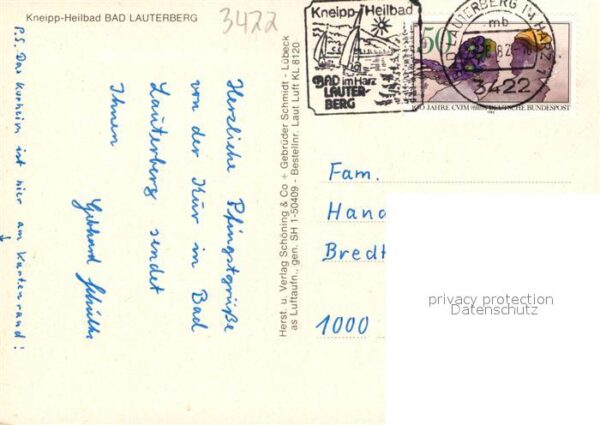 Kneipp-Heilbad BAD LAUTERBERG
3422
Herzliche Pfingstgrüße
von der Kur in Bad
Lauterberg sendet
Ihnen
Gebhard
P.S. Das Kurheim ist hier am Kartenrand!
Herst. u. Verlag Schöning & Co + Gebrüder Schmidt - Lübeck
as Luftaufn., gen. SH 1-50409 - Bestellnr. Laut Luft KL 8120
Kneipp-Heilbad
BAD im Harz
LAUTER-
BERG
LAUTERBERG IM HARZ 1
mb
3422
50
JAHRE CVJM
DEUTSCHE BUNDESPOST
Fam.
Hand
Bredt
1000
privacy protection
Datenschutz